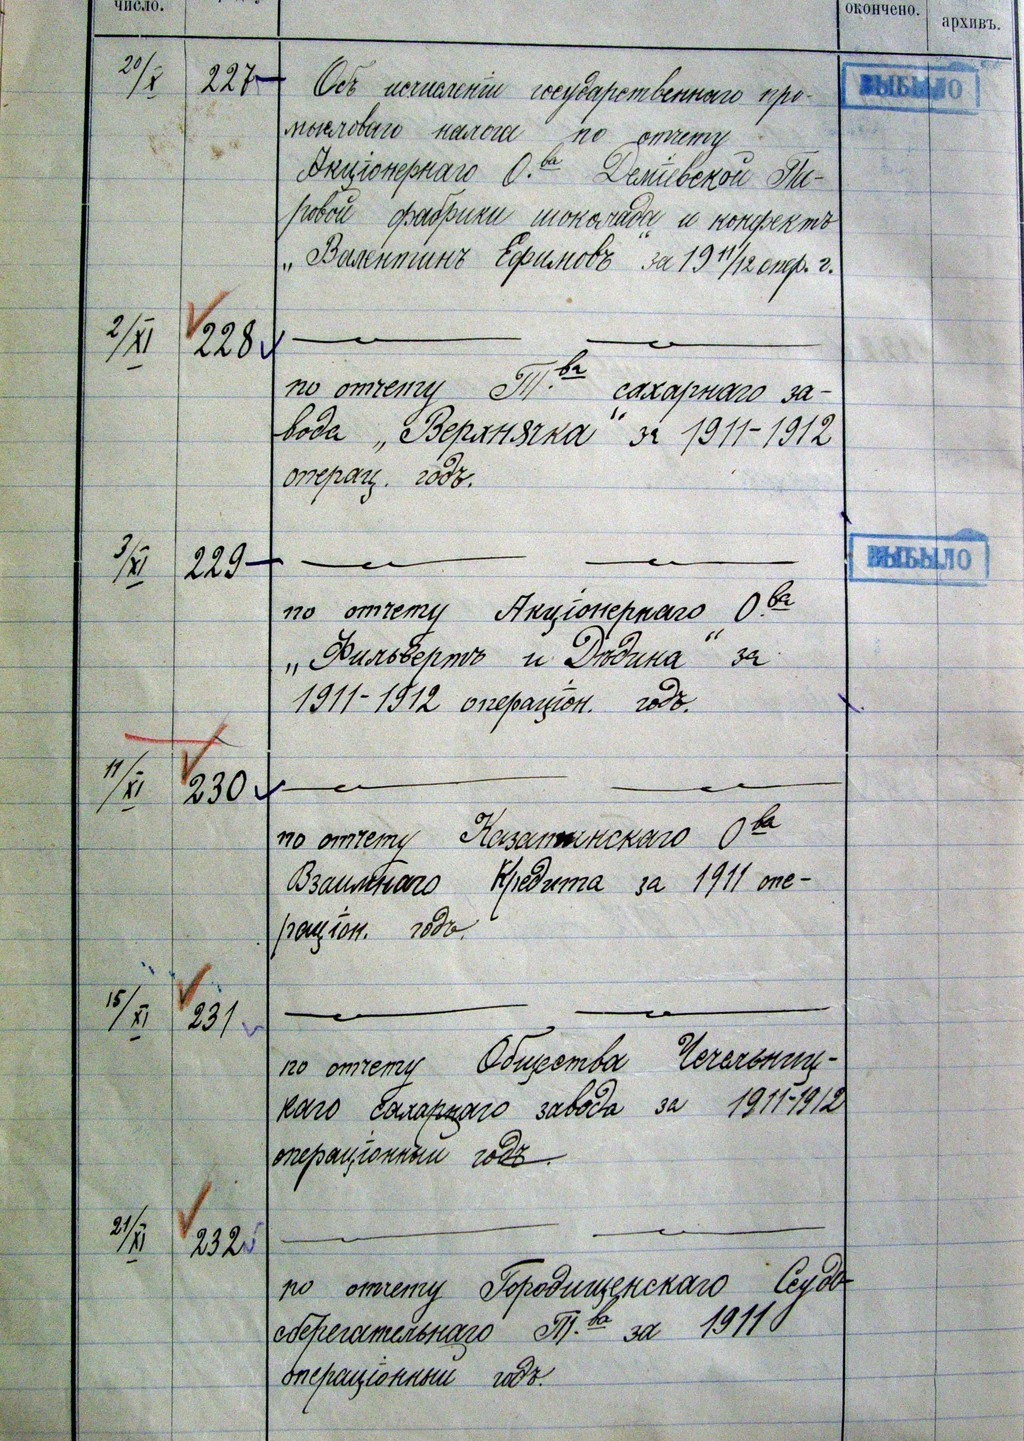 число.
окончено.
архивъ.
20/X 227 Объ исчисленіи государственнаго про-
ВЫБЫЛО
мысловаго налога по отчету
Акціонернаго О.ва Деміевской Па-
ровой фабрики шоколада и конфектъ
„Валентинъ Ефимовъ“ за 1911/12 опер. г.
2/XI 228
по отчету Т.ва сахарнаго за-
вода „Верхнячка“ за 1911-1912
операц. годъ.
3/XI 229
ВЫБЫЛО
по отчету Акціонернаго О.ва
„Фильвертъ и Дѣдина“ за
1911-1912 операціон. годъ.
11/XI 230
по отчету Казатинскаго О.ва
Взаимнаго Кредита за 1911 опе-
раціон. годъ.
15/XI 231
по отчету Общества Чечельниц-
каго сахарнаго завода за 1911-1912
операціонный годъ.
21/XI 232
по отчету Городищенскаго Ссудо-
сберегательнаго Т.ва за 1911
операціонный годъ.